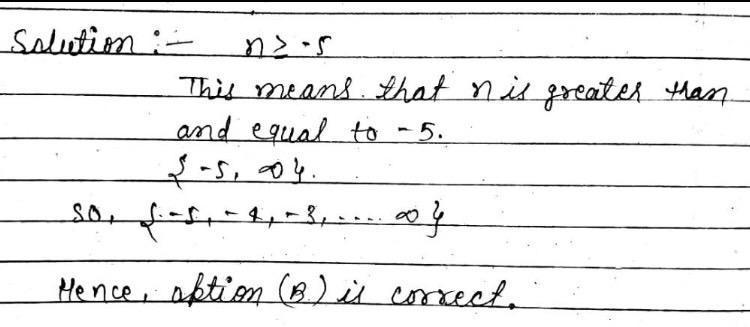 Solution :- n ≥ -5
This means that n is greater than
and equal to -5.
{-5, ∞}.
So, {-5, -4, -3, ..... ∞}
Hence, option (B) is correct.